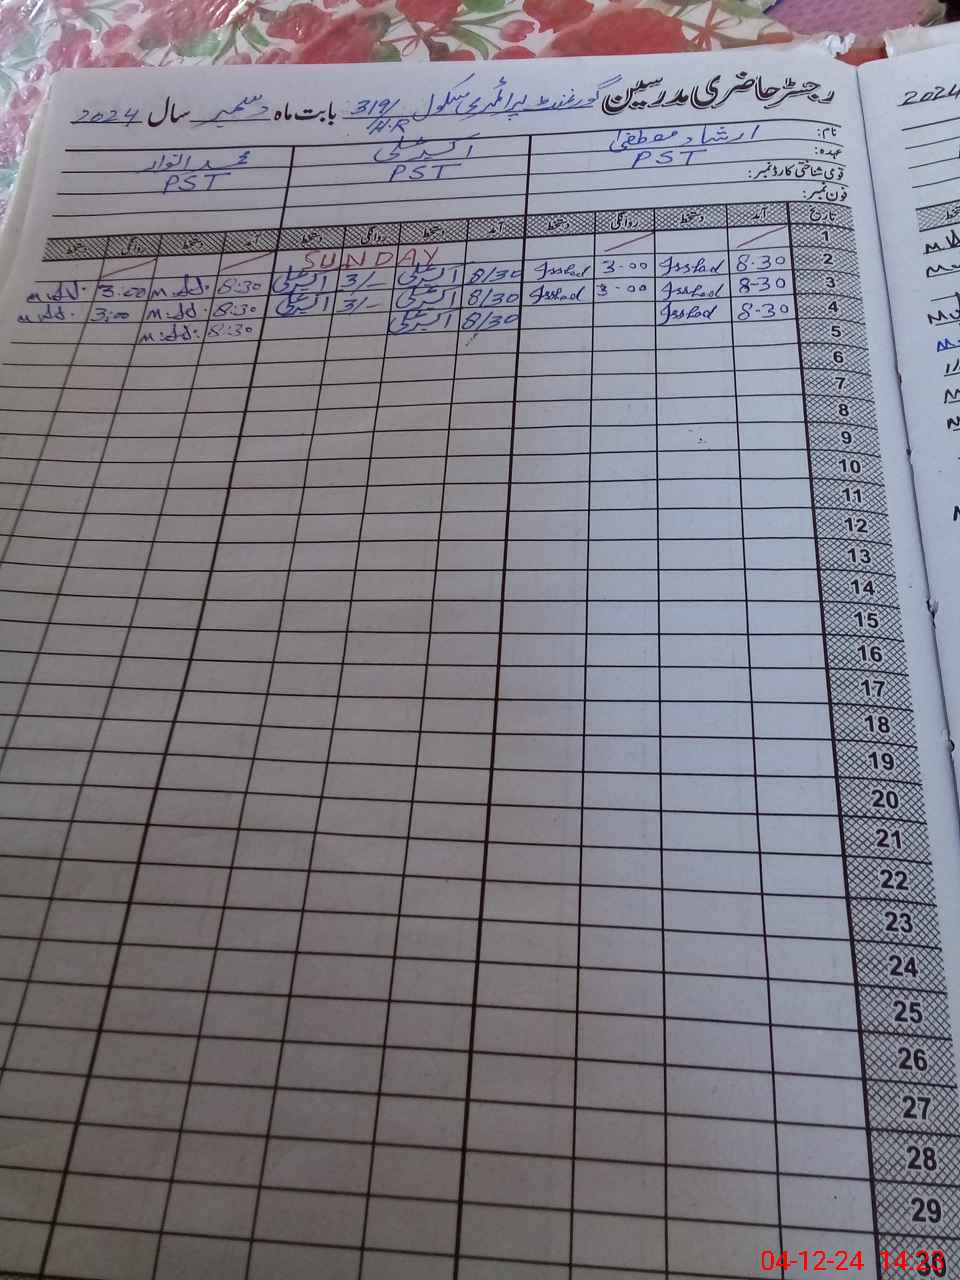 رجسٹر حاضری مدرسین گورنمنٹ پرائمری سکول 319/H.R بابت ماہ دسمبر سال 2024
نام: ارشاد مصطفیٰ اکبر علی محمد انوار
عہدہ: PST PST PST
قومی شناختی کارڈ نمبر:
فون نمبر:
تاریخ آمد دستخط روانگی دستخط آمد دستخط روانگی دستخط آمد دستخط روانگی دستخط
1 SUNDAY
2 8-30 Irshad 3-00 Irshad 8/30 اکبر علی 3/- اکبر علی 8:30 3:00
3 8-30 Irshad 3-00 Irshad 8/30 اکبر علی 3/- اکبر علی 8:30 3:00
4 8-30 Irshad 8/30 اکبر علی 8:30
5
6
7
8
9
10
11
12
13
14
15
16
17
18
19
20
21
22
23
24
25
26
27
28
29
30
2024
04-12-24 14:23